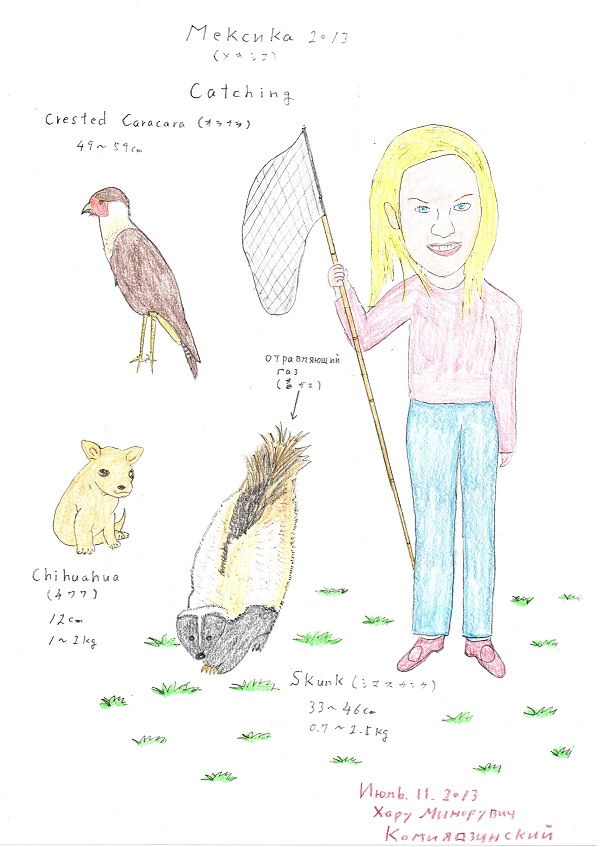 Мексика 2013
(メキシコ)
Catching
Crested Caracara (カラカラ)
49~59cm
отравляющий
газ
(毒ガス)
Chihuahua
(チワワ)
12cm
1~2kg
Skunk (シマスカンク)
33~46cm
0.7~2.5kg
Июль. 11. 2013
Хару Минорувич
Комиядзинский